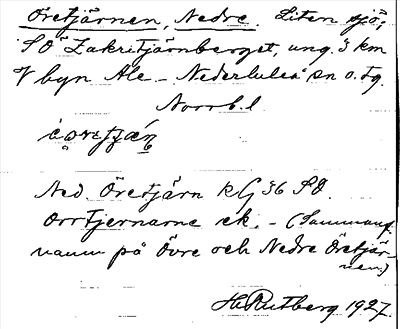 Öretjärnen, Nedre. Liten sjö,
SÖ Zakritjärnberget, ung. 3 km
V byn Ale. - Nederluleå sn o. tg.
Norrb. l
Ned. Öretjärn kG 36 SO.
Orrtjernarne ek. - (Sammanf.
namn på Övre och Nedre Öretjär-
nen)
H Rutberg 1927.